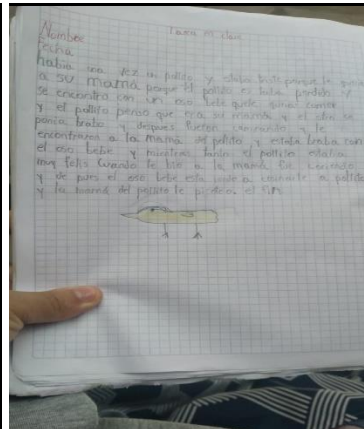 Nombre Tarea en clase
fecha
había una vez un pollito y estaba triste porque le quería
a su mamá porque el pollito estaba perdido y
se encontra con un oso bebe quele quiria comer
y el pollito penso que era su mamá y el oso se
ponia brabo y despues fueron caminando y le
encontraron a la mamá del pollito y estaba braba con
el oso bebe y mientras tanto el pollito estaba
muy felis cuando le bio a la mamá
y de pues el oso bebe esta a comerle a pollito
y la mamá del pollito le el fin